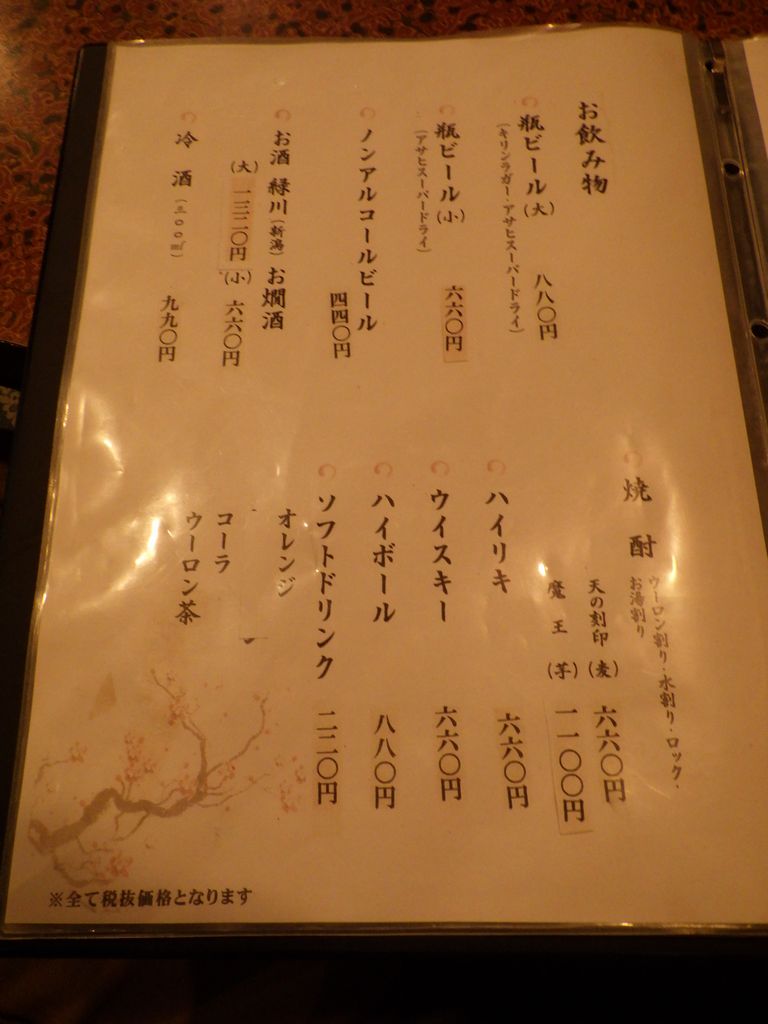 お飲み物
瓶ビール(大) 八八〇円
(キリンラガー・アサヒスーパードライ)
瓶ビール(小) 六六〇円
(アサヒスーパードライ)
ノンアルコールビール
四四〇円
お酒 緑川(新潟) お燗酒
(大) 一三二〇円 (小) 六六〇円
冷酒(三〇〇㎖) 九九〇円
焼酎
ウーロン割り・水割り・ロック・
お湯割り
天の刻印(麦) 六六〇円
魔王(芋) 一一〇〇円
ハイリキ 六六〇円
ウイスキー 六六〇円
ハイボール 八八〇円
ソフトドリンク 二二〇円
オレンジ
コーラ
ウーロン茶
※全て税抜価格となります